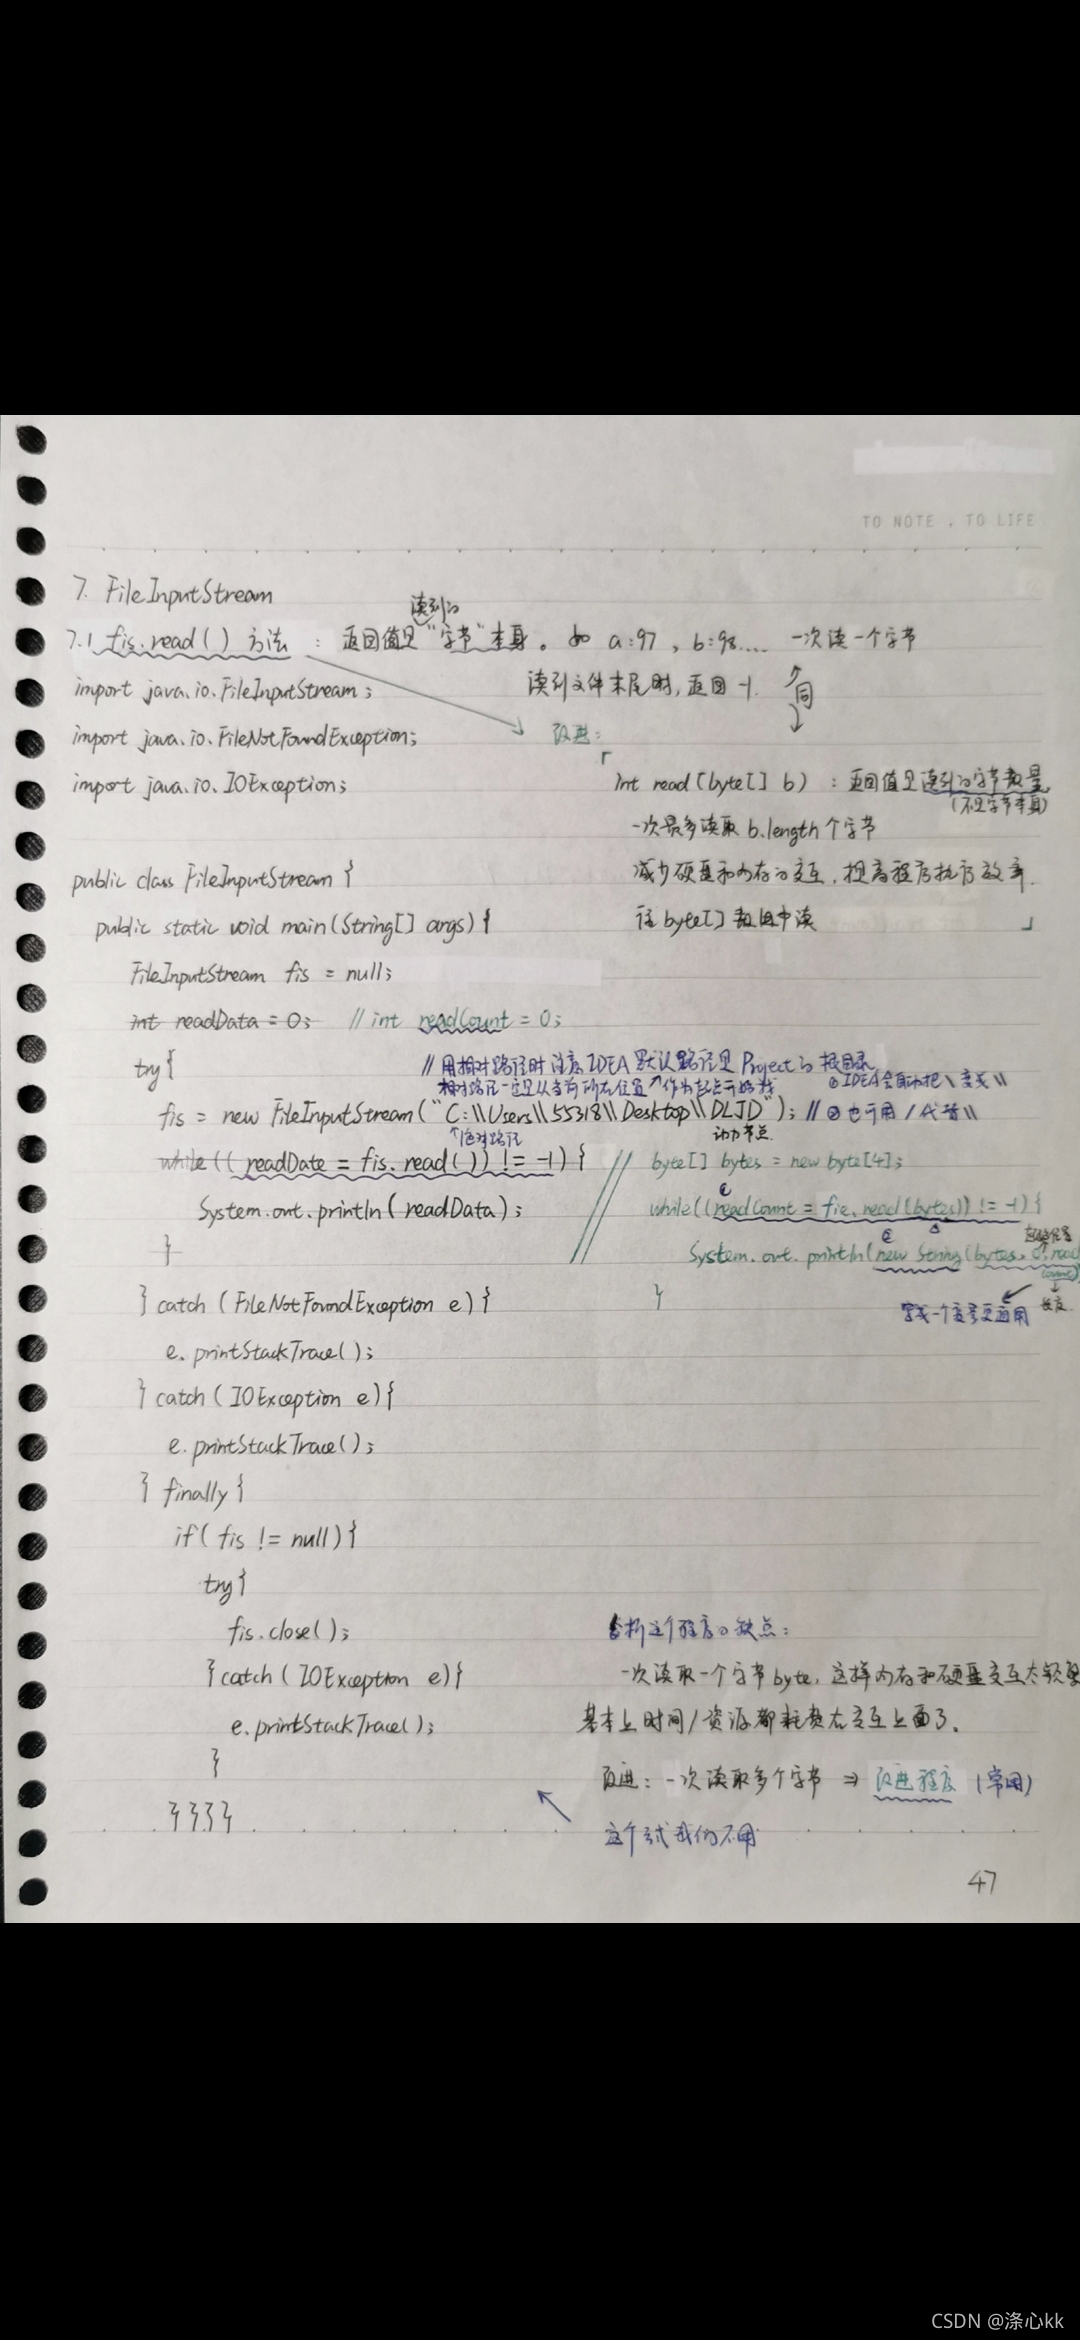 TO NOTE . TO LIFE
7. FileInputStream
读到的
7.1 fis.read() 方法 : 返回值是"字节"本身。如 a:97 , b:98.... 一次读一个字节
import java.io.FileInputStream; 读到文件末尾时,返回 -1. 同
import java.io.FileNotFoundException; 改进:
import java.io.IOException; int read(byte[] b) : 返回值是读到的字节数量
(不是字节本身)
一次最多读取 b.length 个字节
public class FileInputStream { 减少硬盘和内存的交互,提高程序执行效率.
public static void main(String[] args){ 往 byte[] 数组中读
FileInputStream fis = null;
int readData = 0; // int readCount = 0;
try{ // 用相对路径时注意 IDEA 默认路径是 Project 的根目录
相对路径一定是从当前所在位置作为起点开始找 ① IDEA会自动把 \ 变成 \\
fis = new FileInputStream("C:\\Users\\55318\\Desktop\\DLJD"); // ② 也可用 / 代替 \\
↑绝对路径 动力节点.
while(( readDate = fis.read()) != -1){ // byte[] bytes = new byte[4];
System.out.println( readData); while((readCount = fis.read(bytes)) != -1){
} System.out.println(new String(bytes, 0, read
Count)
} catch (FileNotFoundException e){ } 长度
e.printStackTrace();
} catch (IOException e){
e.printStackTrace();
} finally{
if( fis != null){
try{
fis.close(); 分析这个程序的缺点:
}catch (IOException e){ 一次读取一个字节byte, 这样内存和硬盘交互太频繁
e.printStackTrace(); 基本上时间/资源都耗费在交互上面了.
} 改进: 一次读取多个字节 ⇒ 改进程序 (常用)
}}}} 这个方式我们不用
47
CSDN @涤心kk